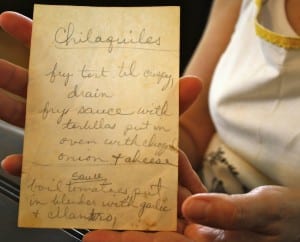 Chilaquiles
fry tort til crispy,
drain
fry sauce with
tortillas put in
oven with chopped
onion & cheese
Sauce
boil tomatoes put
in blender with garlic
& cilantro,